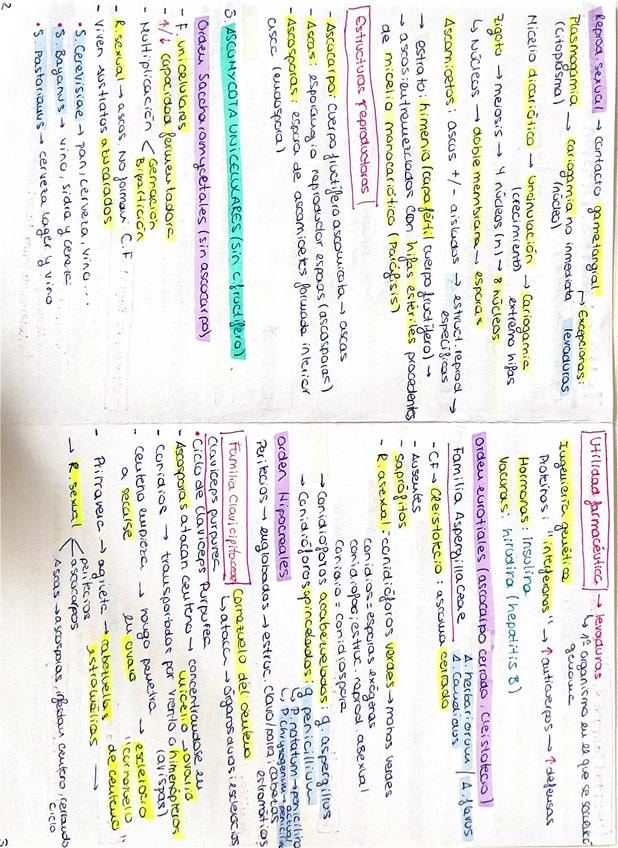 Reprod. sexual → contacto gametangial
Plasmogamia → cariogamia no inmediata
(citoplasma) (núcleo)
Excepciones:
levaduras
Micelio dicariótico → Uncinulación → Cariogamia
(crecimiento) extremo hifas
Zigoto → meiosis → 4 núcleos (n) → 8 núcleos
↳ Núcleos → doble membrana → esporas
Ascomicetos: ascos +/- aislados → estruct. reprod →
específicas
→ estrato: himenio (capa fértil cuerpo fructífero) →
→ ascos entremezclados con hifas estériles procedentes
de micelio monocariótico (Paráfisis)
Estructuras reproductoras
- Ascocarpo: cuerpo fructífero ascomicota → ascas
- Ascas: esporangio reproductor esporas (ascosporas)
- Ascosporas: espora de ascomicetos formada interior
asca (endospora)
3. ASCOMYCOTA UNICELULARES (sin c. fructífero)
Orden Sacharomycetales (sin ascocarpo)
- F. unicelulares
- ↑/↓ capacidad fermentadora
- Multiplicación < Gemación
Bipartición
- R. sexual → ascas no forman C.F
- Viven sustratos azucarados
• S. Cerevisiae → pan, cerveza, vino...
• S. Bayanus → vino, sidra y cerve
• S. Pastorianus → cerveza lager y vino
2
Utilidad farmacéutica → levaduras
↳ 1º organismo en el que se secuenció
genoma
Ingeniería genética
Proteínas: "interferones" → ↑ anticuerpos → ↑ defensas
Hormonas: insulina
Vacunas: hirudina (hepatitis B)
Orden eurotiales (ascocarpo cerrado, cleistotecio)
Familia Aspergillaceae
A. herbariorum / A. flavus
A. Candidus
- CF → Cleistotecio: ascoma cerrado
- Ausentes
- Saprófitos
- R. asexual: conidióforos verdes → mohos verdes
conidios = esporas exógenas
conidiofos: estruc. reprod asexual
conidio = conidiospora
→ conidióforos acabezuelados: g. aspergillus
→ conidióforos apincelados: g. penicillium
↳ P. notatum → penicilina
↳ P. chrysogenum → actual penicilina
Orden Hipocreales
Peritecios → englobados → estruc. clava/porra: cabezas
estromáticas
Familia Clavicipitaceae
Claviceps purpurea
Cornezuelo del centeno
↳ ataca → órganos ovar: esclerocios
• Ciclo de Claviceps Purpurea
- Ascosporas atacan centeno → concentrandose en
micelio → ovario
- Conidios → transportados por viento o himenópteros
(avispas)
- Centeno empieza → rompo panestra → esclerocio
a secarse en ovario "cornezuelo
de centeno"
- Primavera → agrieta → cabezuelas →
peritecios estromáticas
- R. sexual < ascocarpos
Ascas → ascosporas, infectan centeno, cerrando
ciclo
3